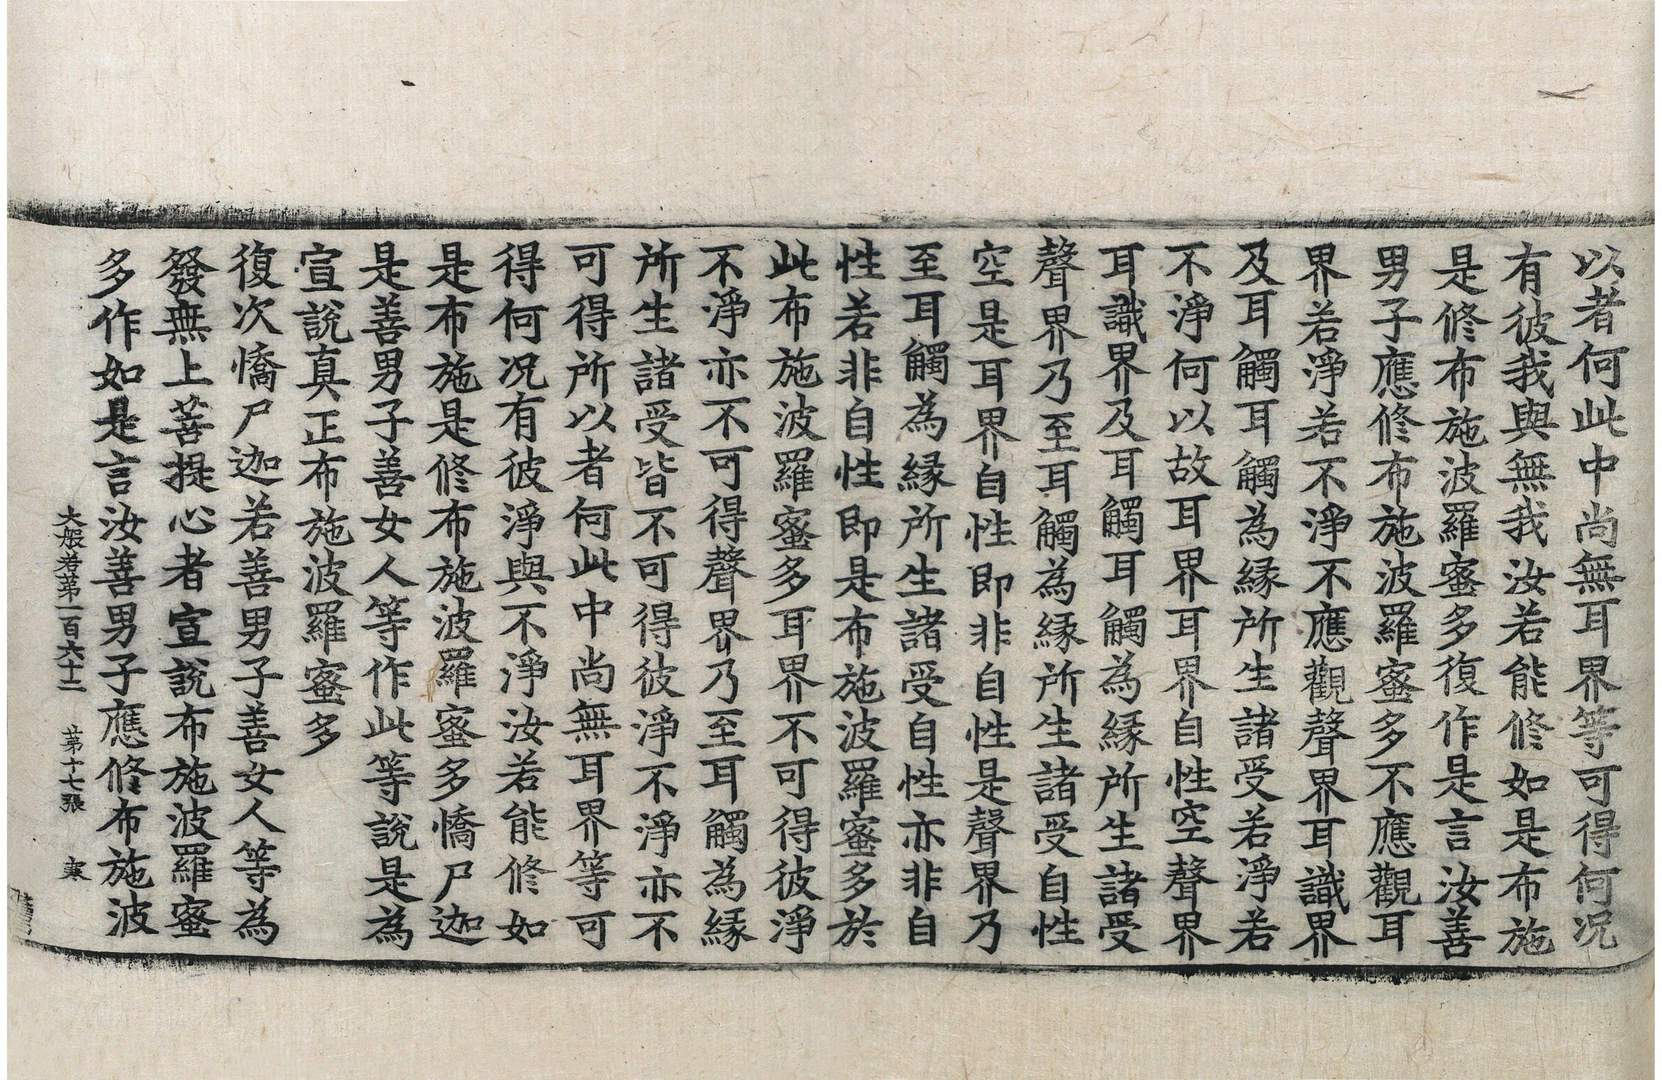 以者何此中尚無耳界等可得何況
有彼我與無我汝若能修如是布施
是修布施波羅蜜多復作是言汝善
男子應修布施波羅蜜多不應觀耳
界若淨若不淨不應觀聲界耳識界
及耳觸耳觸為緣所生諸受若淨若
不淨何以故耳界耳界自性空聲界
耳識界及耳觸耳觸為緣所生諸受
聲界乃至耳觸為緣所生諸受自性
空是耳界自性即非自性是聲界乃
至耳觸為緣所生諸受自性亦非自
性若非自性即是布施波羅蜜多於
此布施波羅蜜多耳界不可得彼淨
不淨亦不可得聲界乃至耳觸為緣
所生諸受皆不可得彼淨不淨亦不
可得所以者何此中尚無耳界等可
得何況有彼淨與不淨汝若能修如
是布施是修布施波羅蜜多憍尸迦
是善男子善女人等作此等說是為
宣說真正布施波羅蜜多
復次憍尸迦若善男子善女人等為
發無上菩提心者宣說布施波羅蜜
多作如是言汝善男子應修布施波
大般若第一百六十二 第十七張